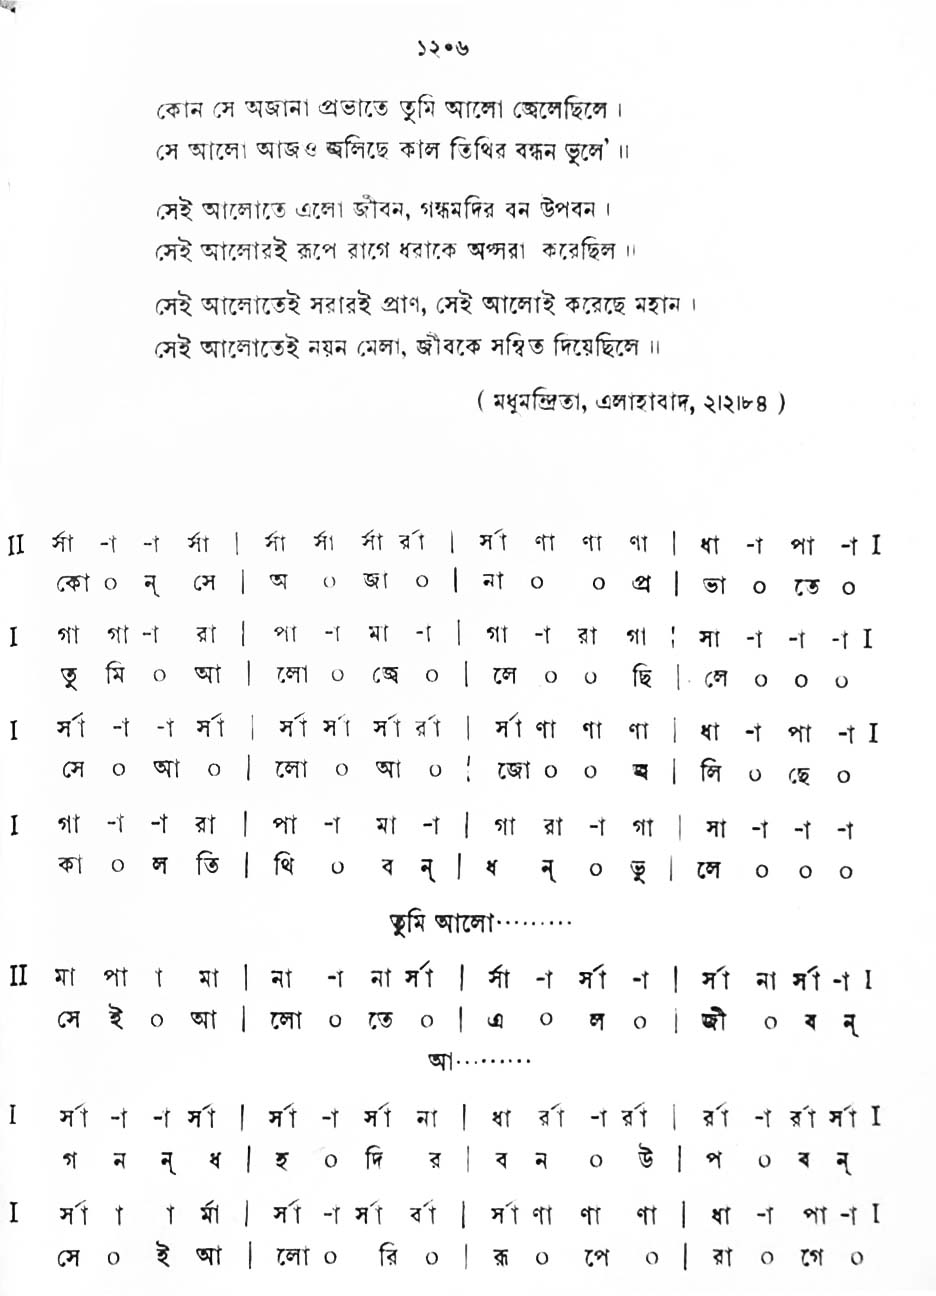 ১২০৬
কোন সে অজানা প্রভাতে তুমি আলো জ্বেলেছিলে ।
সে আলো আজও জ্বলিছে কাল তিথির বন্ধন ভুলে' ॥
সেই আলোতে এলো জীবন, গন্ধমদির বন উপবন ।
সেই আলোরই রূপে রাগে ধরাকে অপ্সরা করেছিল ॥
সেই আলোতেই সবারই প্রাণ, সেই আলোই করেছে মহান ।
সেই আলোতেই নয়ন মেলা, জীবকে সম্বিত দিয়েছিলে ॥
( মধুমন্দ্রিতা, এলাহাবাদ, ২।২।৮৪ )
II র্সা -া -া র্সা | র্সা র্সা র্সা র্রা | র্সা ণা ণা ণা | ধা -া পা -া I
কো ০ ন্ সে | অ ০ জা ০ | না ০ ০ প্র | ভা ০ তে ০
I গা গা -া রা | পা -া মা -া | গা -া রা গা ¦ সা -া -া -া I
তু মি ০ আ | লো ০ জ্বে ০ | লে ০ ০ ছি | লে ০ ০ ০
I র্সা -া -া র্সা | র্সা র্সা র্সা র্রা | র্সা ণা ণা ণা | ধা -া পা -া I
সে ০ আ ০ | লো ০ আ ০ ¦ জো ০ ০ জ্ব | লি ০ ছে ০
I গা -া -া রা | পা -া মা -া | গা রা -া গা | সা -া -া -া
কা ০ ল তি | থি ০ ব ন্ | ধ ন্ ০ ভু | লে ০ ০ ০
তুমি আলো·········
II মা পা া মা | না -া না র্সা | র্সা -া র্সা -া | র্সা না র্সা -া I
সে ই ০ আ | লো ০ তে ০ | এ ০ ল ০ | জী ০ ব ন্
আ·········
I র্সা -া -া র্সা | র্সা -া র্সা না | ধা র্রা -া র্রা | র্রা -া র্রা র্সা I
গ ন ন্ ধ | হ ০ দি র | ব ন ০ উ | প ০ ব ন্
I র্সা া া র্মা | র্সা -া র্সা র্বা | র্সা ণা ণা ণা | ধা -া পা -া I
সে ০ ই আ | লো ০ রি ০ | রূ ০ পে ০ | রা ০ গে ০